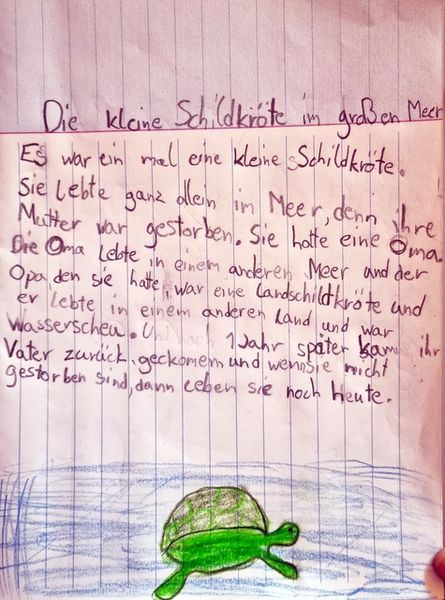 Die kleine Schildkröte im großen Meer
Es war ein mal eine kleine Schildkröte.
Sie lebte ganz allein im Meer, denn ihre
Mutter war gestorben. Sie hatte eine Oma.
Die Oma lebte in einem anderen Meer und der
Opa, den sie hatte, war eine Landschildkröte und
er lebte in einem anderen Land und war
Wasserscheu. Und nach 1 Jahr später kam ihr
Vater zurück geckomem und wenn sie nicht
gestorben sind, dann leben sie noch heute.